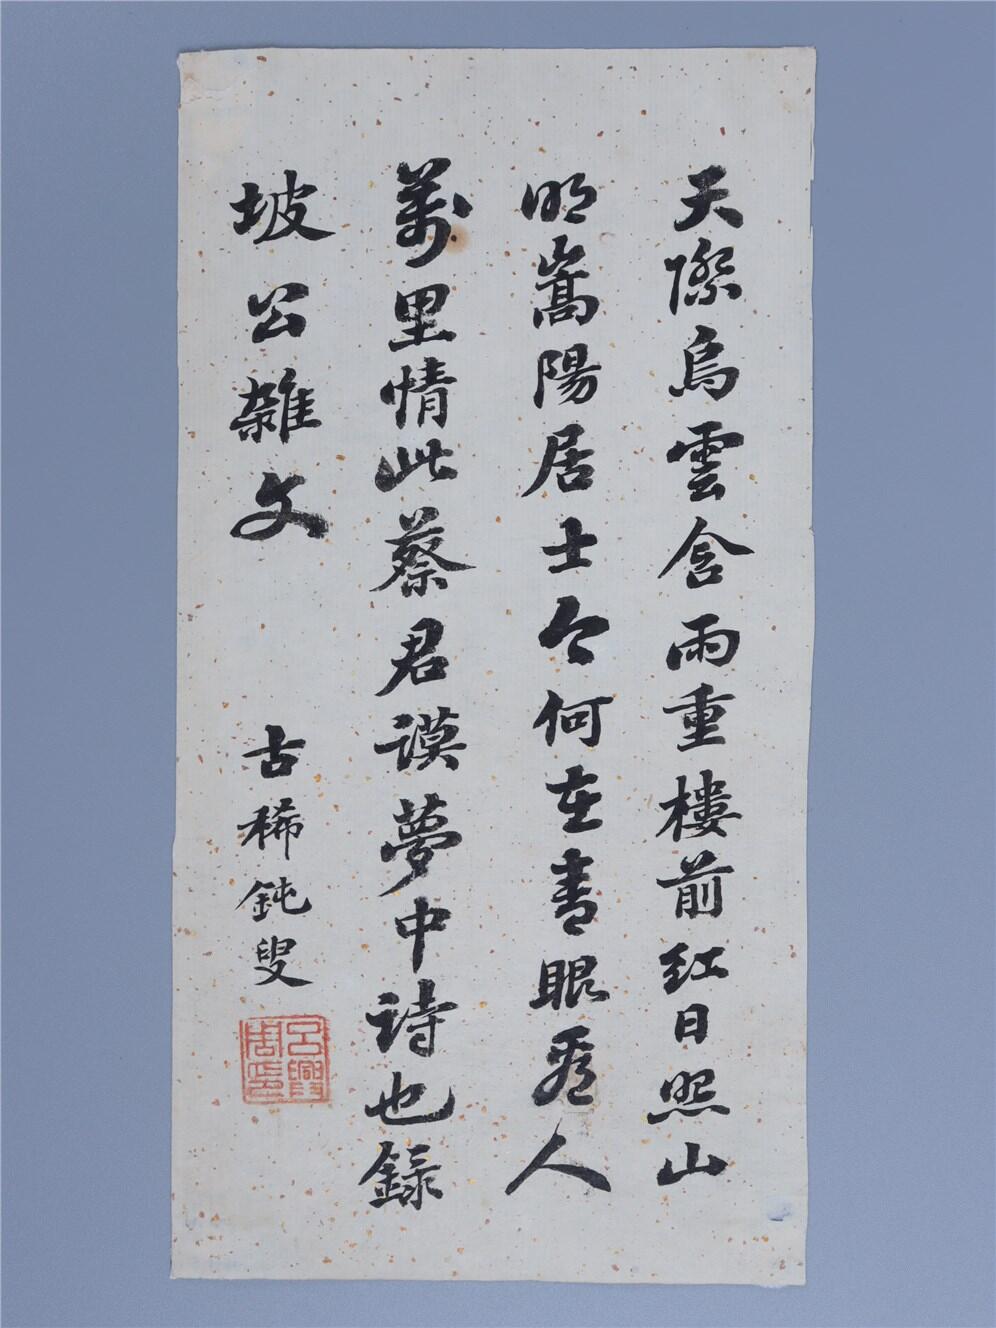 天際烏雲含雨重樓前紅日照山
明嵩陽居士今何在青眼看人
萬里情此蔡君謨夢中詩也錄
坡公雜文
古稀鈍叟
呂興周印